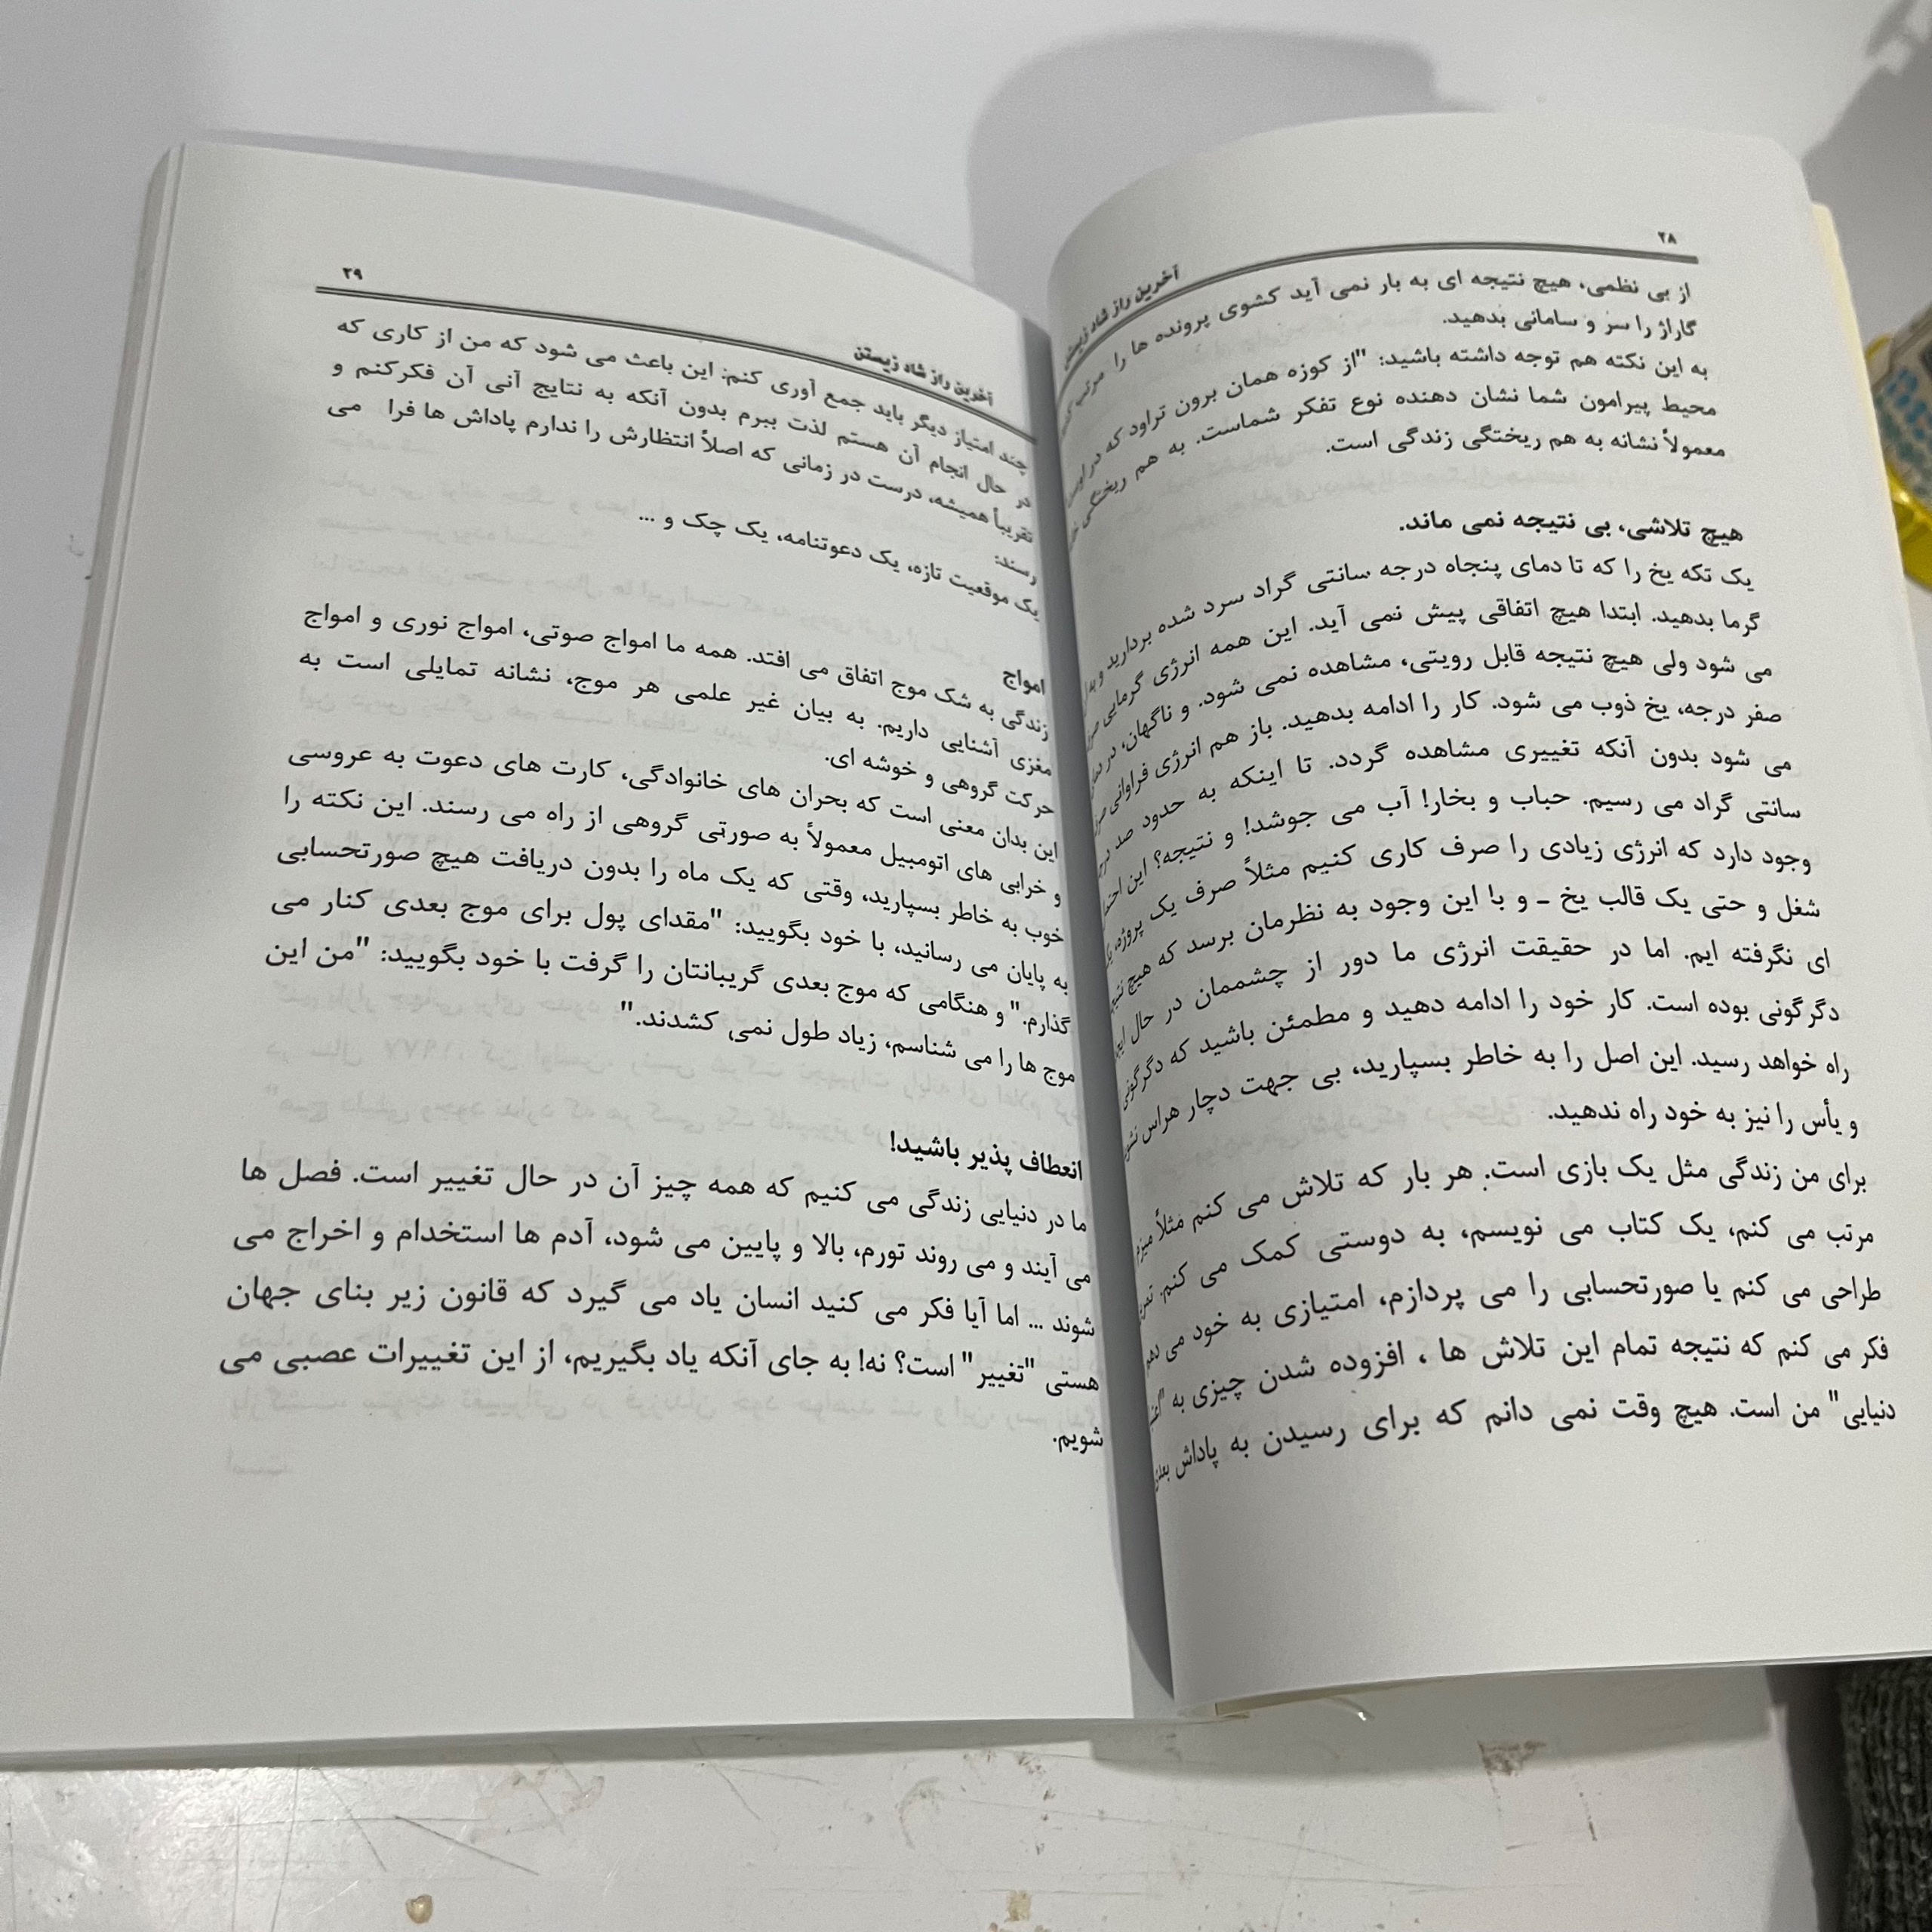 ۲۸
آخرین راز شاد زیستن
از بی نظمی، هیچ نتیجه ای به بار نمی آید کشوی پرونده ها را مرتب
گاراژ را سر و سامانی بدهید.
به این نکته هم توجه داشته باشید: "از کوزه همان برون تراود که در اوست
محیط پیرامون شما نشان دهنده نوع تفکر شماست. به هم ریختگی
معمولاً نشانه به هم ریختگی زندگی است.
هیچ تلاشی، بی نتیجه نمی ماند.
یک تکه یخ را که تا دمای پنجاه درجه سانتی گراد سرد شده بردارید و به
گرما بدهید. ابتدا هیچ اتفاقی پیش نمی آید. این همه انرژی گرمایی
می شود ولی هیچ نتیجه قابل رویتی، مشاهده نمی شود. و ناگهان، در
صفر درجه، یخ ذوب می شود. کار را ادامه بدهید. باز هم انرژی فراوانی
می شود بدون آنکه تغییری مشاهده گردد. تا اینکه به حدود صد
سانتی گراد می رسیم. حباب و بخار! آب می جوشد! و نتیجه؟ این
وجود دارد که انرژی زیادی را صرف کاری کنیم مثلاً صرف یک پروژه،
شغل و حتی یک قالب یخ ـ و با این وجود به نظرمان برسد که هیچ
ای نگرفته ایم. اما در حقیقت انرژی ما دور از چشممان در حال
دگرگونی بوده است. کار خود را ادامه دهید و مطمئن باشید که دگرگونی
راه خواهد رسید. این اصل را به خاطر بسپارید، بی جهت دچار هراس
و یأس را نیز به خود راه ندهید.
برای من زندگی مثل یک بازی است. هر بار که تلاش می کنم مثلاً میزم
مرتب می کنم، یک کتاب می نویسم، به دوستی کمک می کنم.
طراحی می کنم یا صورتحسابی را می پردازم، امتیازی به خود می دهم
فکر می کنم که نتیجه تمام این تلاش ها ، افزوده شدن چیزی به
دنیایی" من است. هیچ وقت نمی دانم که برای رسیدن به پاداش بعدی
۲۹
آخرین راز شاد زیستن
چند امتیاز دیگر باید جمع آوری کنم: این باعث می شود که من از کاری که
در حال انجام آن هستم لذت ببرم بدون آنکه به نتایج آنی آن فکرکنم و
تقریباً همیشه، درست در زمانی که اصلاً انتظارش را ندارم پاداش ها فرا می
رسند:
یک موقعیت تازه، یک دعوتنامه، یک چک و ...
امواج
زندگی به شک موج اتفاق می افتد. همه ما امواج صوتی، امواج نوری و امواج
مغزی آشنایی داریم. به بیان غیر علمی هر موج، نشانه تمایلی است به
حرکت گروهی و خوشه ای.
این بدان معنی است که بحران های خانوادگی، کارت های دعوت به عروسی
و خرابی های اتومبیل معمولاً به صورتی گروهی از راه می رسند. این نکته را
خوب به خاطر بسپارید، وقتی که یک ماه را بدون دریافت هیچ صورتحسابی
به پایان می رسانید، با خود بگویید: "مقدای پول برای موج بعدی کنار می
گذارم." و هنگامی که موج بعدی گریبانتان را گرفت با خود بگویید: "من این
موج ها را می شناسم، زیاد طول نمی کشدند."
انعطاف پذیر باشید!
ما در دنیایی زندگی می کنیم که همه چیز آن در حال تغییر است. فصل ها
می آیند و می روند تورم، بالا و پایین می شود، آدم ها استخدام و اخراج می
شوند ... اما آیا فکر می کنید انسان یاد می گیرد که قانون زیر بنای جهان
هستی "تغییر" است؟ نه! به جای آنکه یاد بگیریم، از این تغییرات عصبی می
شویم.